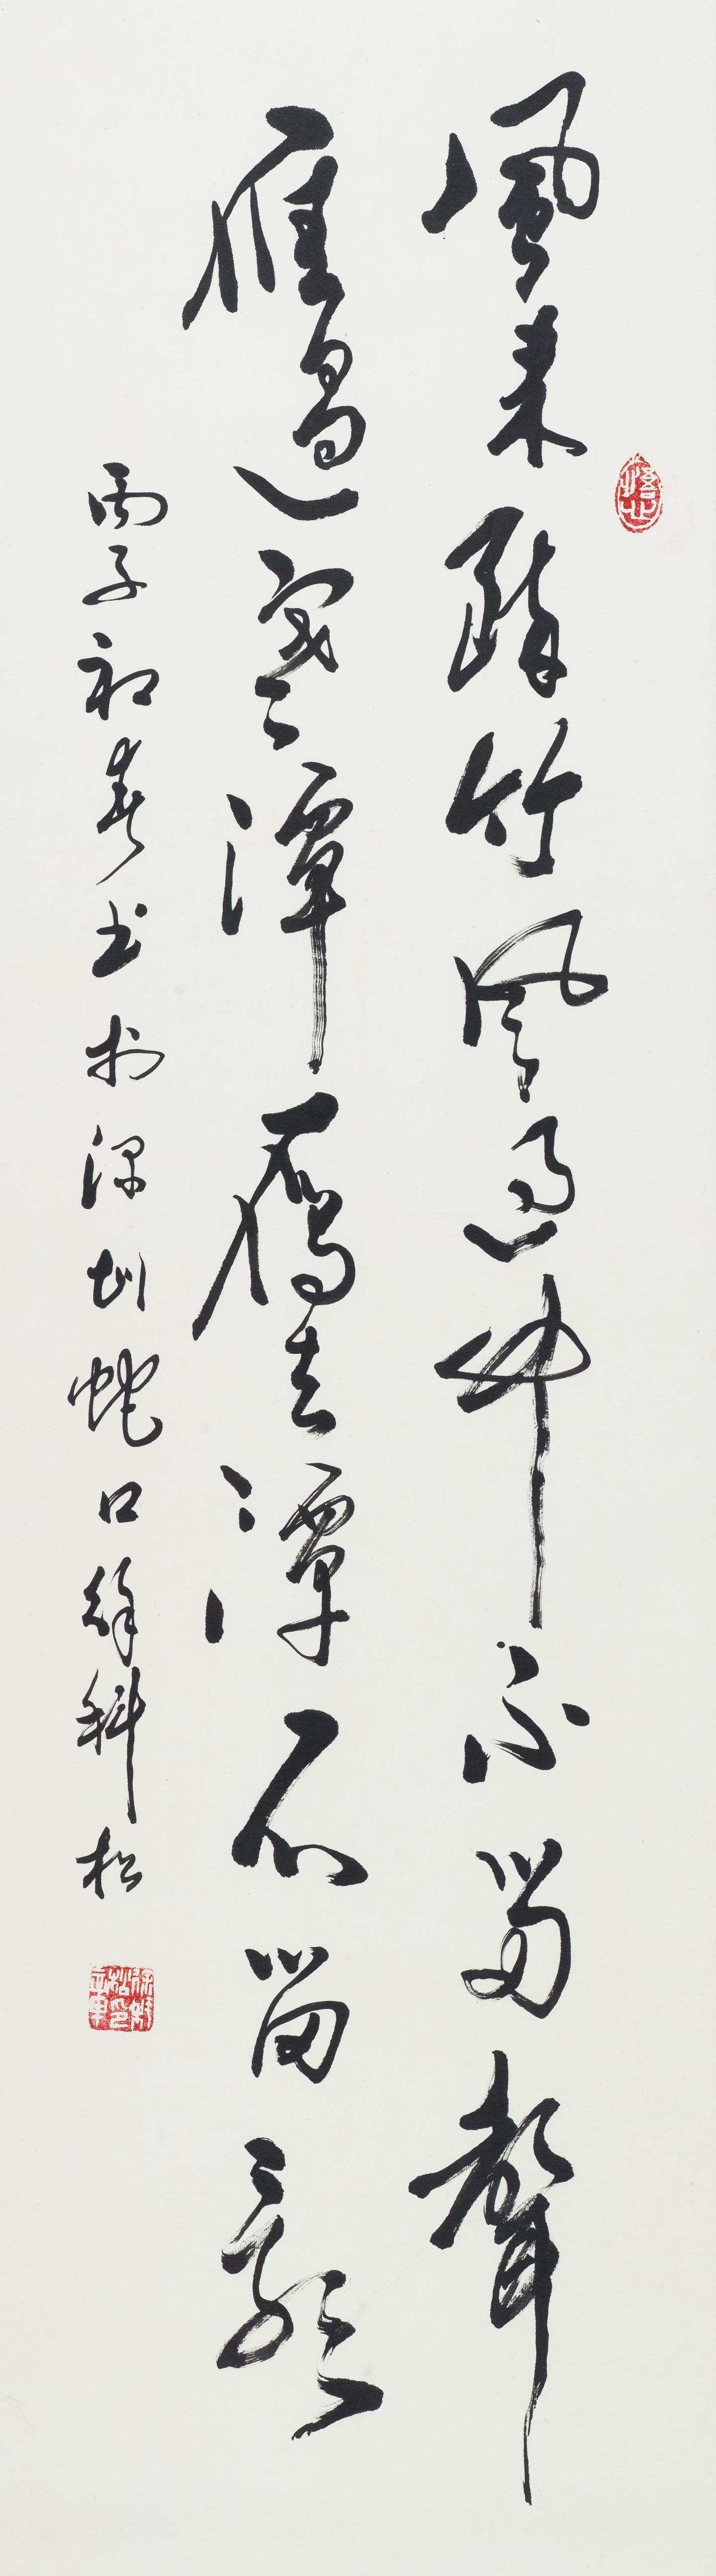 風來疎竹風過竹不留聲
雁過寒潭雁去潭不留影
丙子初春书於深圳蛇口徐科松